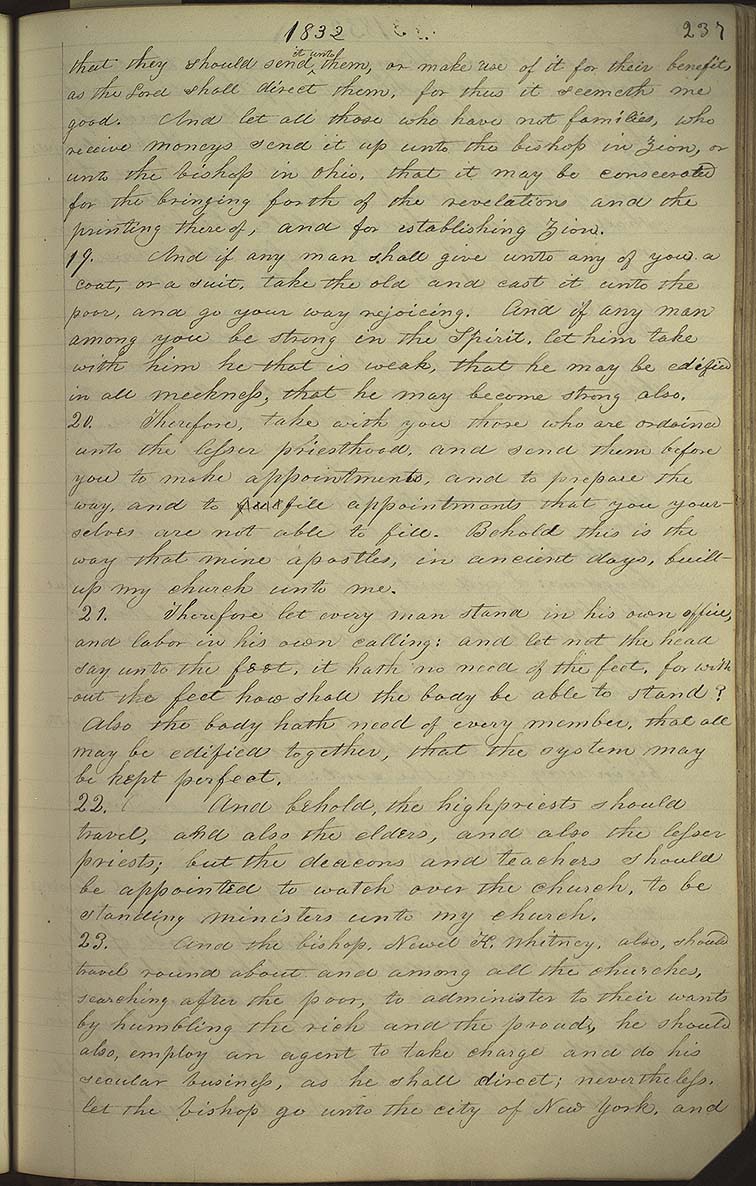 1832
237
that they should send it unto them, or make use of it for their benefit,
as the Lord shall direct them, for thus it seemeth me
good. And let all those who have not families, who
receive moneys send it up unto the bishop in Zion, or
unto the bishop in Ohio, that it may be consecrated
for the bringing forth of the revelations and the
printing thereof, and for establishing Zion.
19. And if any man shall give unto any of you a
coat, or a suit, take the old and cast it unto the
poor, and go your way rejoicing. And if any man
among you be strong in the Spirit, let him take
with him he that is weak, that he may be edified
in all meekness, that he may become strong also.
20. Therefore, take with you those who are ordaind
unto the lesser priesthood, and send them before
you to make appointments, and to prepare the
way, and to fill appointments that you your-
selves are not able to fill. Behold this is the
way that mine apostles, in ancient days, built
up my church unto me.
21. Therefore let every man stand in his own office,
and labor in his own calling: and let not the head
say unto the feet, it hath no need of the feet, for with
out the feet how shall the body be able to stand?
Also the body hath need of every member, that all
may be edified together, that the system may
be kept perfect.
22. And behold, the highpriests should
travel, and also the elders, and also the lesser
priests; but the deacons and teachers should
be appointed to watch over the church, to be
standing ministers unto my church.
23. And the bishop, Newel K. Whitney, also, should
travel round about and among all the churches,
searching after the poor, to administer to their wants
by humbling the rich and the proud, he should
also, employ an agent to take charge and do his
secular business, as he shall direct; nevertheless,
let the bishop go unto the city of New York, and